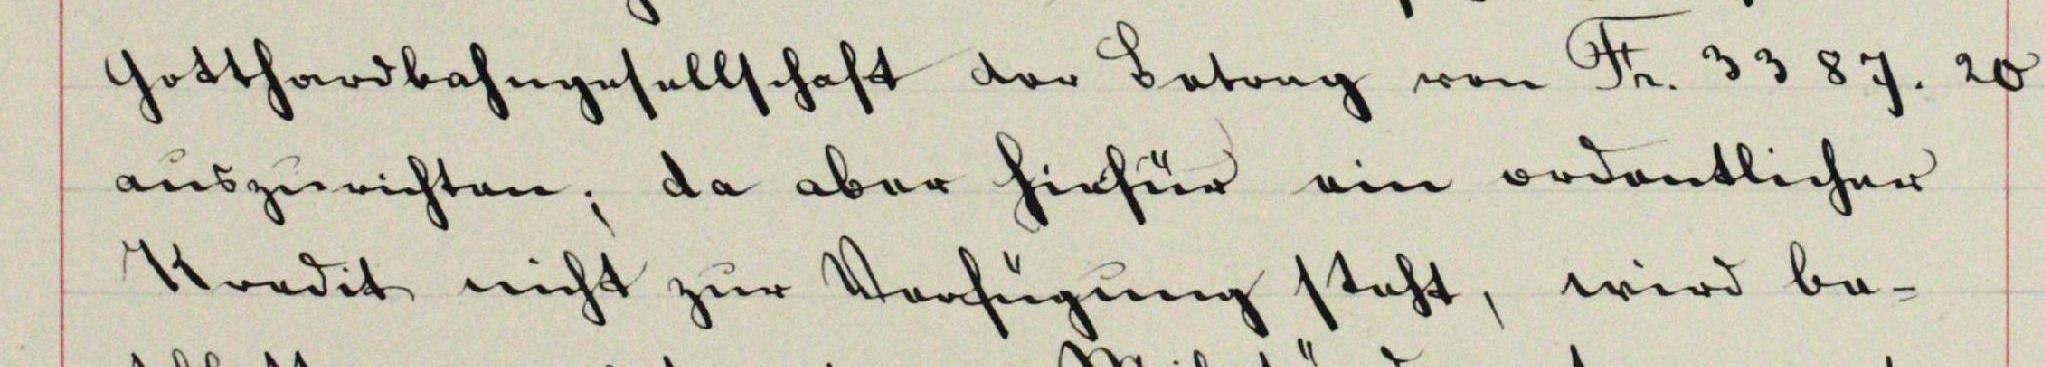 Gotthardbahngesellschaft der Betrag von Fr. 3387.20
auszurichten; da aber hiefür ein ordentlicher
Kredit nicht zur Verfügung steht, wird be-